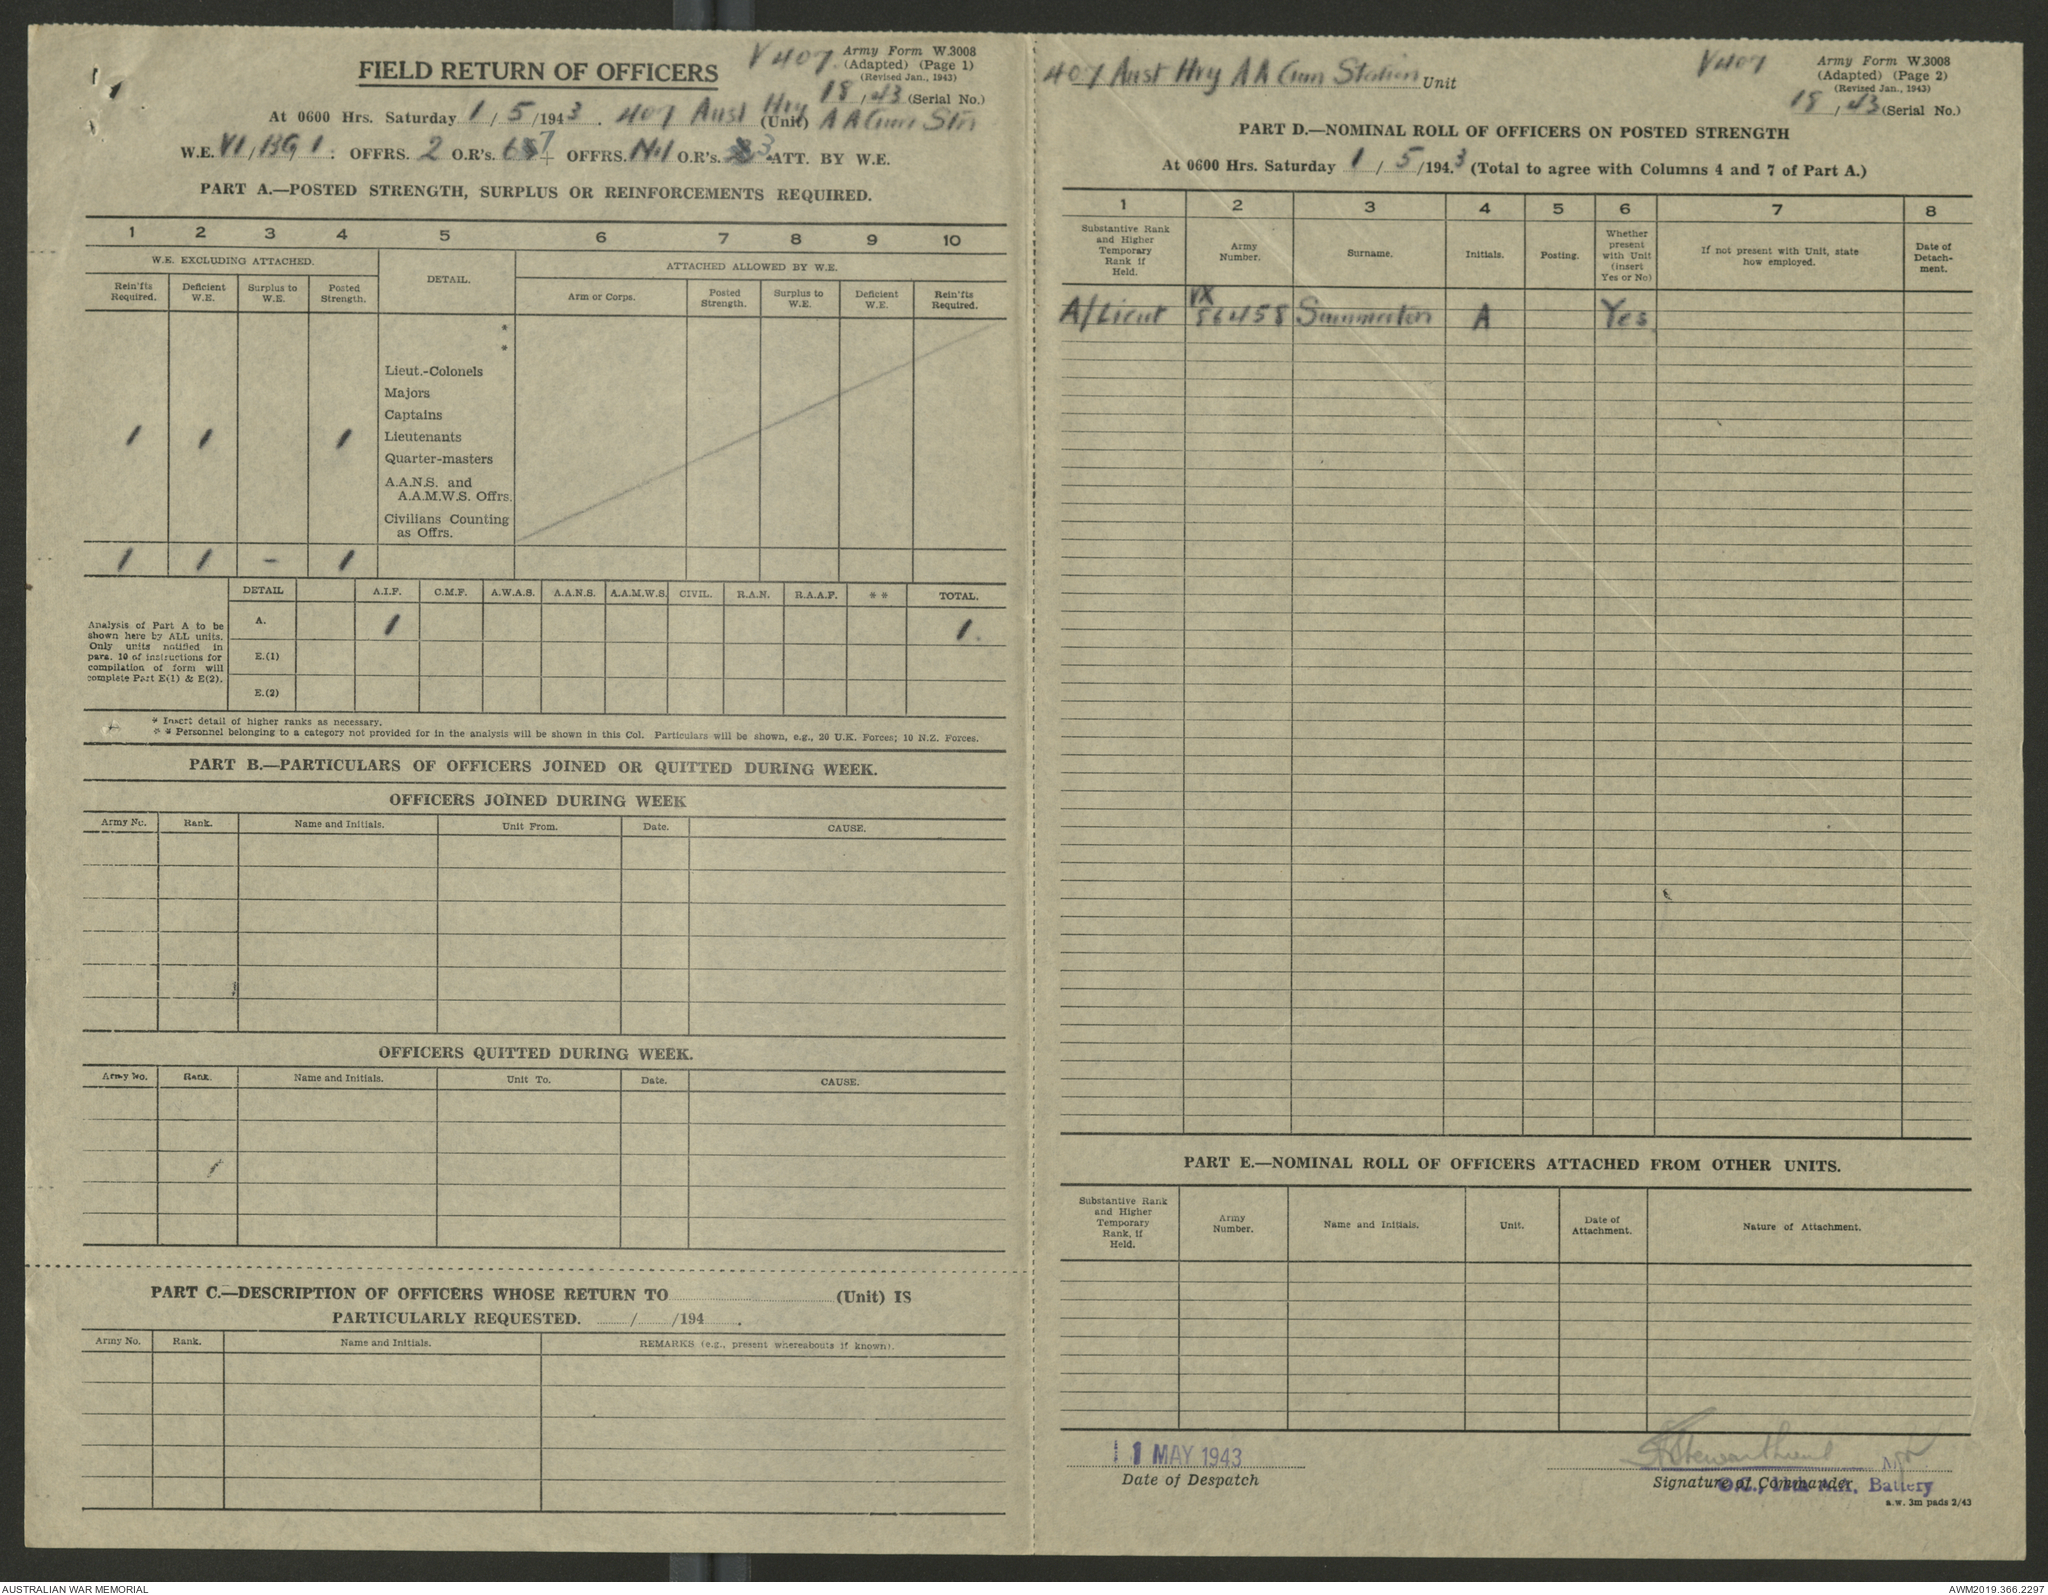 V407. Army Form W.3008
(Adapted) (Page 1)
(Revised Jan., 1943)
FIELD RETURN OF OFFICERS
18/43 (Serial No.)
At 0600 Hrs. Saturday 1/5/1943. 407 Aust Hvy (Unit) A A Gun Stn
W.E. VI/BG 1: OFFRS. 2 O.R's. 67 OFFRS. Nil O.R's. 3 ATT. BY W.E.
PART A.—POSTED STRENGTH, SURPLUS OR REINFORCEMENTS REQUIRED.
1 2 3 4 5 6 7 8 9 10
W.E. EXCLUDING ATTACHED. DETAIL. ATTACHED ALLOWED BY W.E.
Rein'fts Required. Deficient W.E. Surplus to W.E. Posted Strength. Arm or Corps. Posted Strength. Surplus to W.E. Deficient W.E. Rein'fts Required.
*
*
Lieut.-Colonels
Majors
Captains
1 1 1 Lieutenants
Quarter-masters
A.A.N.S. and
A.A.M.W.S. Offrs.
Civilians Counting
as Offrs.
1 1 - 1
DETAIL A.I.F. C.M.F. A.W.A.S. A.A.N.S. A.A.M.W.S. CIVIL. R.A.N. R.A.A.F. * * TOTAL.
Analysis of Part A to be
shown here by ALL units.
Only units notified in
para. 10 of instructions for
compilation of form will
complete Part E(1) & E(2).
A. 1 1.
E.(1)
E.(2)
* Insert detail of higher ranks as necessary.
* * Personnel belonging to a category not provided for in the analysis will be shown in this Col. Particulars will be shown, e.g., 20 U.K. Forces; 10 N.Z. Forces.
PART B.—PARTICULARS OF OFFICERS JOINED OR QUITTED DURING WEEK.
OFFICERS JOINED DURING WEEK
Army No. Rank. Name and Initials. Unit From. Date. CAUSE.
OFFICERS QUITTED DURING WEEK.
Army No. Rank. Name and Initials. Unit To. Date. CAUSE.
PART C.—DESCRIPTION OF OFFICERS WHOSE RETURN TO (Unit) IS
PARTICULARLY REQUESTED. / /194 .
Army No. Rank. Name and Initials. REMARKS (e.g., present whereabouts if known).
407 Aust Hvy A A Gun Station Unit
V407 Army Form W.3008
(Adapted) (Page 2)
(Revised Jan., 1943)
18/43 (Serial No.)
PART D.—NOMINAL ROLL OF OFFICERS ON POSTED STRENGTH
At 0600 Hrs. Saturday 1/5/1943 (Total to agree with Columns 4 and 7 of Part A.)
1 2 3 4 5 6 7 8
Substantive Rank and Higher Temporary Rank if Held. Army Number. Surname. Initials. Posting. Whether present with Unit (insert Yes or No) If not present with Unit, state how employed. Date of Detach-ment.
A/Lieut VX 56458 Summerton A Yes
PART E.—NOMINAL ROLL OF OFFICERS ATTACHED FROM OTHER UNITS.
Substantive Rank and Higher Temporary Rank, if Held. Army Number. Name and Initials. Unit. Date of Attachment. Nature of Attachment.
11 MAY 1943
Date of Despatch
Signature of Commander
Battery
a.w. 3m pads 2/43
AUSTRALIAN WAR MEMORIAL
AWM2019.366.2297